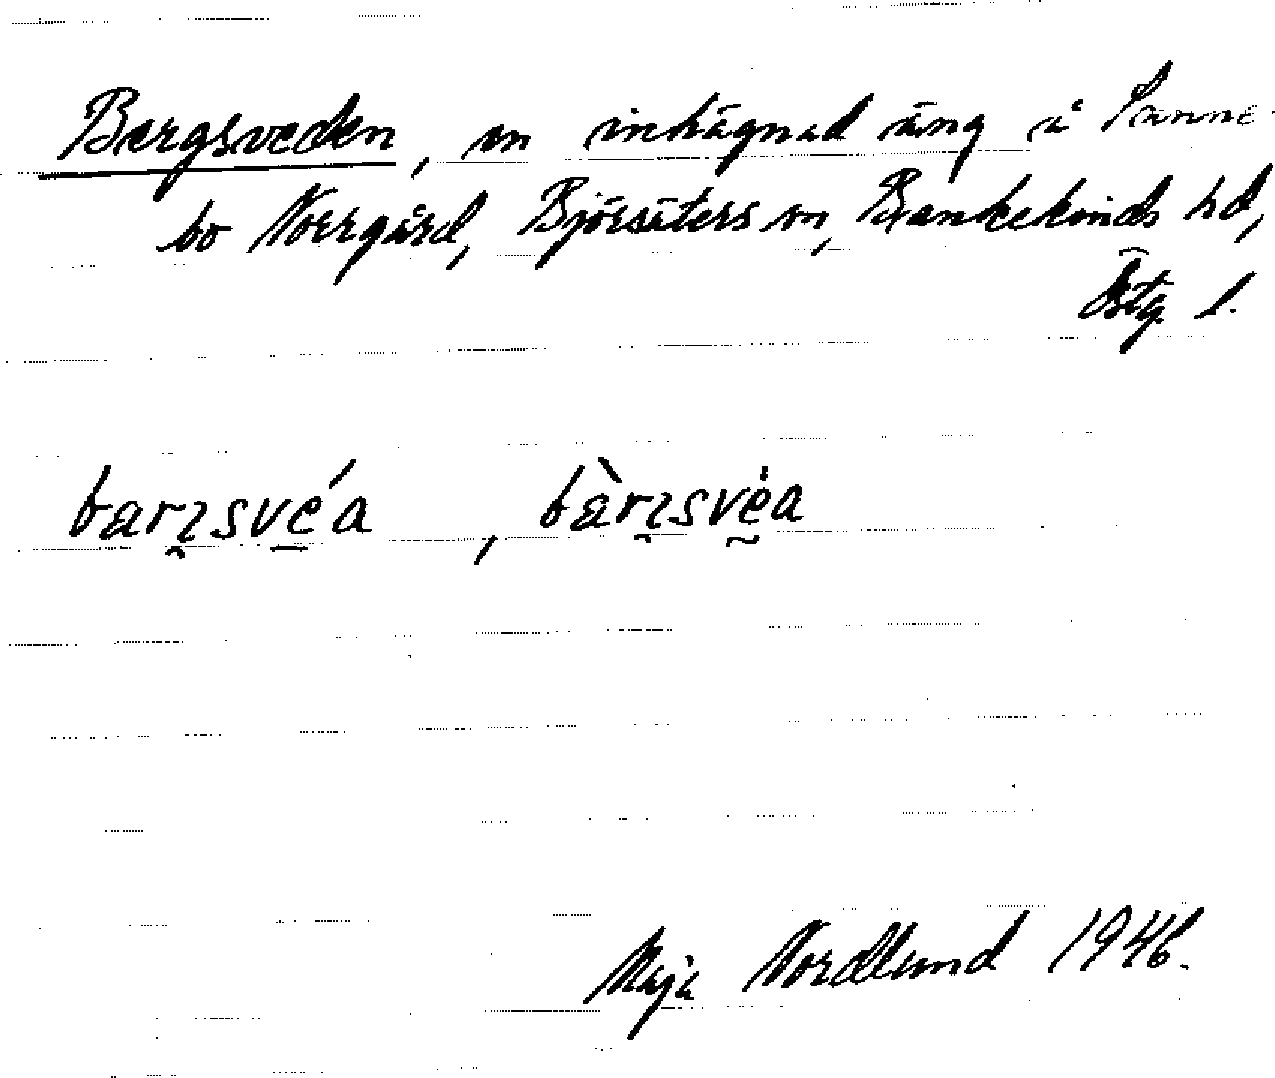 Bergsveden, en inhägnad äng å Sänne-
bo Norrgård, Björsäters sn, Bankekinds hd,
Östg. l.
barꝣsvéa, bàrꝣsvėa
Maja Nordlund 1946.